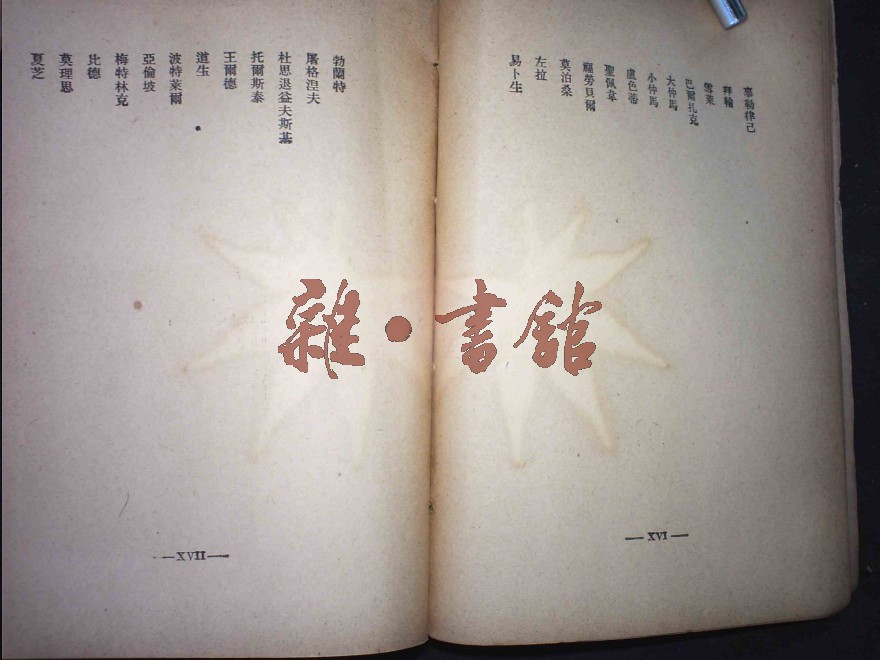 辜勒律己
拜輪
雪萊
巴爾扎克
大仲馬
小仲馬
盧色蒂
聖佩韋
福勞貝爾
莫泊桑
左拉
易卜生
— XVI —
勃蘭特
屠格涅夫
杜思退益夫斯基
托爾斯泰
王爾德
道生
波特萊爾
亞倫坡
梅特林克
比德
莫理思
夏芝
—XVII—
雜·書館